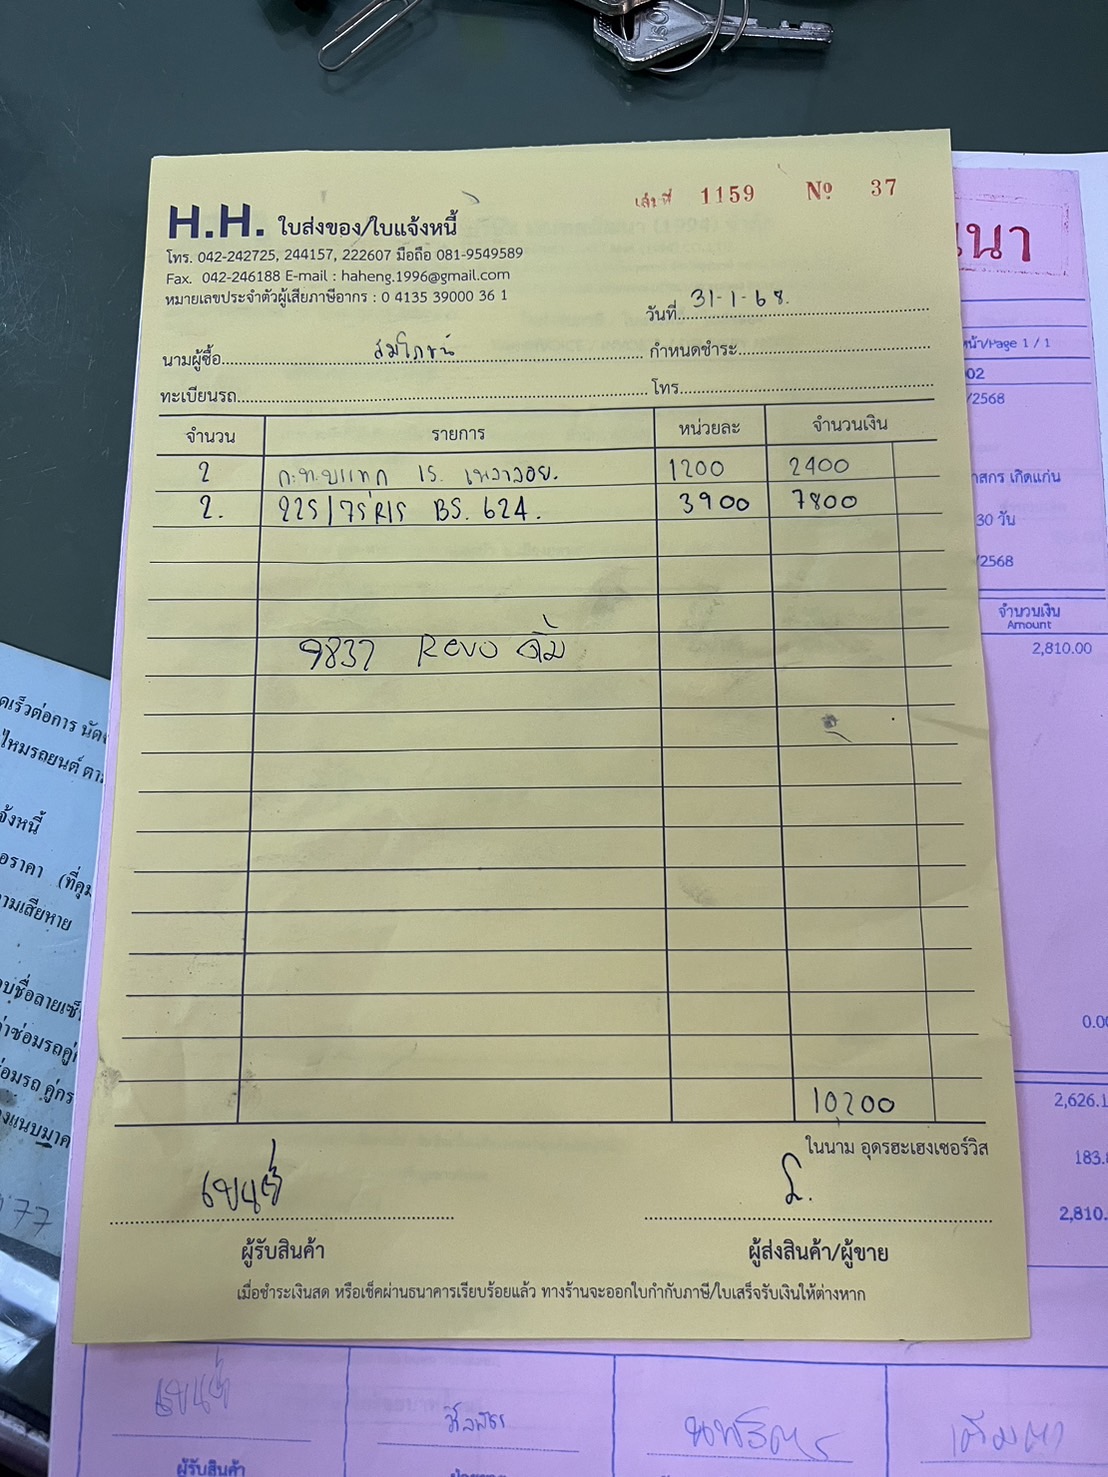 เล่มที่ 1159 Nº 37
H.H. ใบส่งของ/ใบแจ้งหนี้
โทร. 042-242725, 244157, 222607 มือถือ 081-9549589
Fax. 042-246188 E-mail : haheng.1996@gmail.com
หมายเลขประจำตัวผู้เสียภาษีอากร : 0 4135 39000 36 1
วันที่ 31-1-68.
นามผู้ซื้อ สมโภชน์ กำหนดชำระ
ทะเบียนรถ โทร
จำนวน รายการ หน่วยละ จำนวนเงิน
2 ก.ท.บแทก 15. เพลาลอย. 1200 2400
2. 225/75R15 BS. 624. 3900 7800
9837 Revo ส้ม
10,200
ในนาม อุดรฮะเฮงเซอร์วิส
ผู้รับสินค้า ผู้ส่งสินค้า/ผู้ขาย
เมื่อชำระเงินสด หรือเช็คผ่านธนาคารเรียบร้อยแล้ว ทางร้านจะออกใบกำกับภาษี/ใบเสร็จรับเงินให้ต่างหาก
นา
หน้า/Page 1 / 1
02
/2568
าสกร เกิดแก่น
30 วัน
/2568
จำนวนเงิน
Amount
2,810.00
0.00
2,626.1
183.
2,810.
ดเร็วต่อการ นัด
ไหมรถยนต์ ตา
จ้งหนี้
อราคา (ที่คุม
ามเสียหาย
บชื่อลายเซ็
่าซ่อมรถคู่
ซ่อมรถ คู่กร
งแนบมาค
77
ผู้รับสินค้า